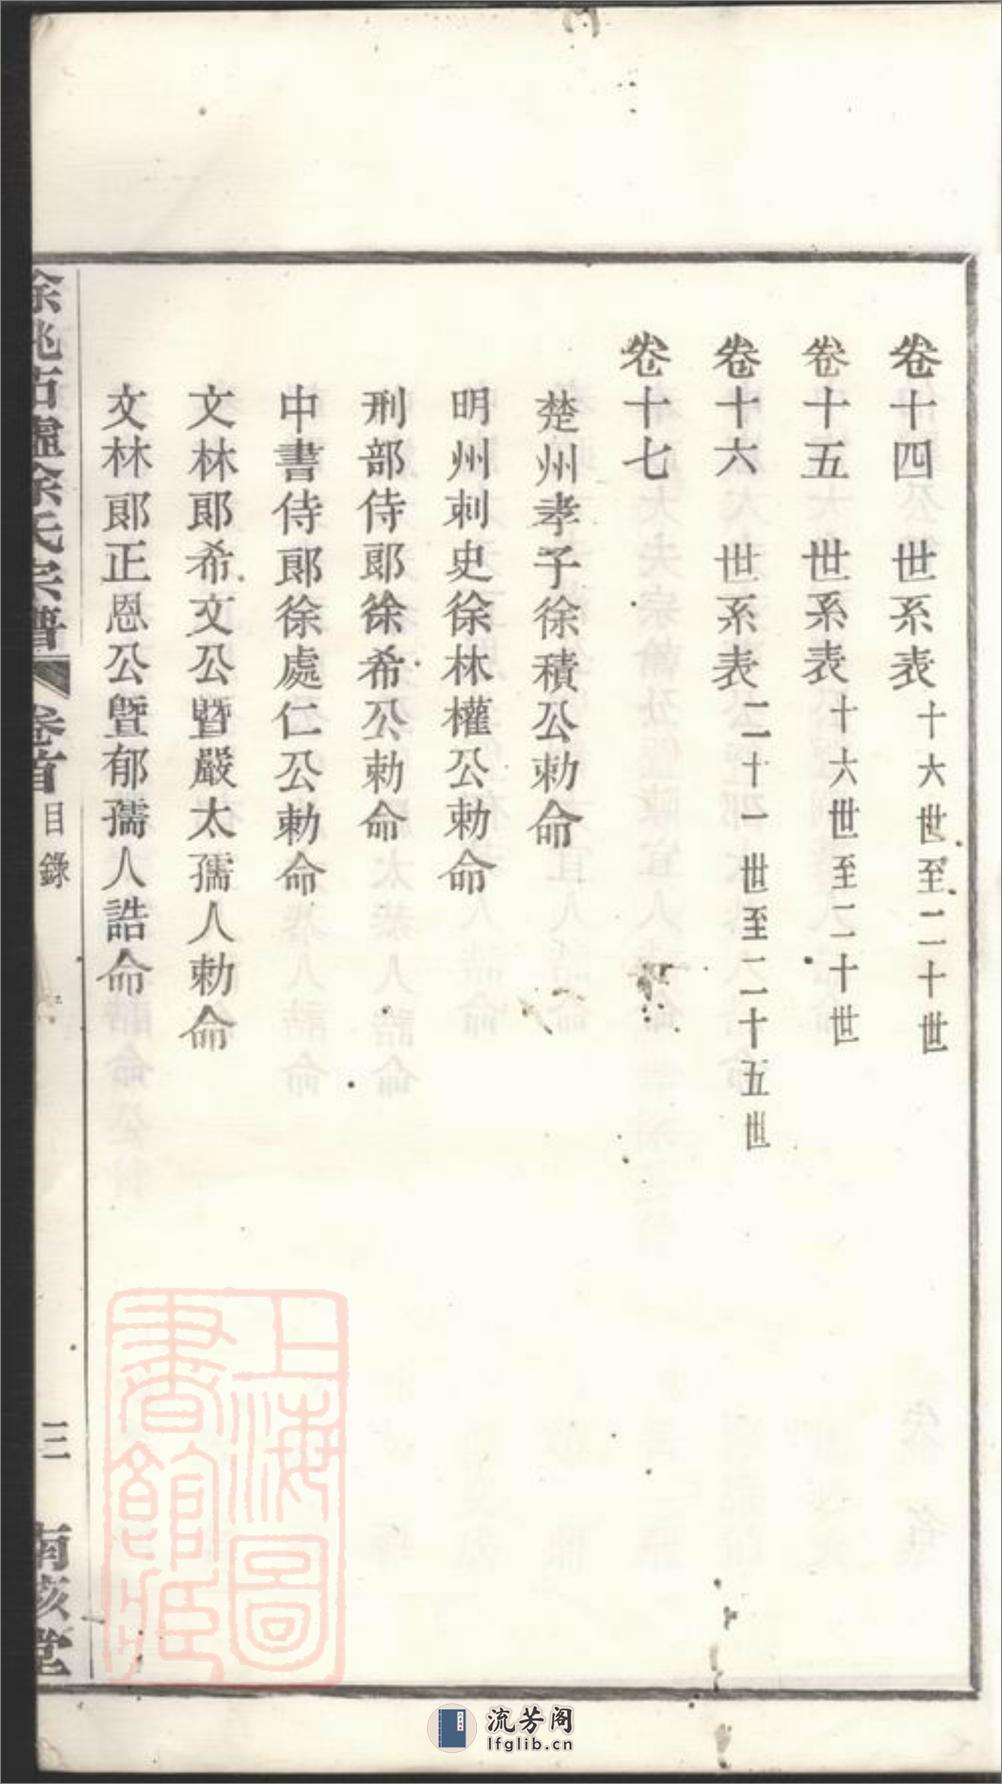 卷十四　世系表　十六世至二十世
卷十五　世系表　十六世至二十世
卷十六　世系表　二十一世至二十五世
卷十七
楚州孝子徐積公勅命
明州刺史徐林權公勅命
刑部侍郎徐希公勅命
中書侍郎徐處仁公勅命
文林郎希文公暨嚴太孺人勅命
文林郎正恩公暨郁孺人誥命
余姚古虛徐氏宗譜　卷首　目錄　三
堂
上海圖書館藏
流芳阁
lfglib.cn